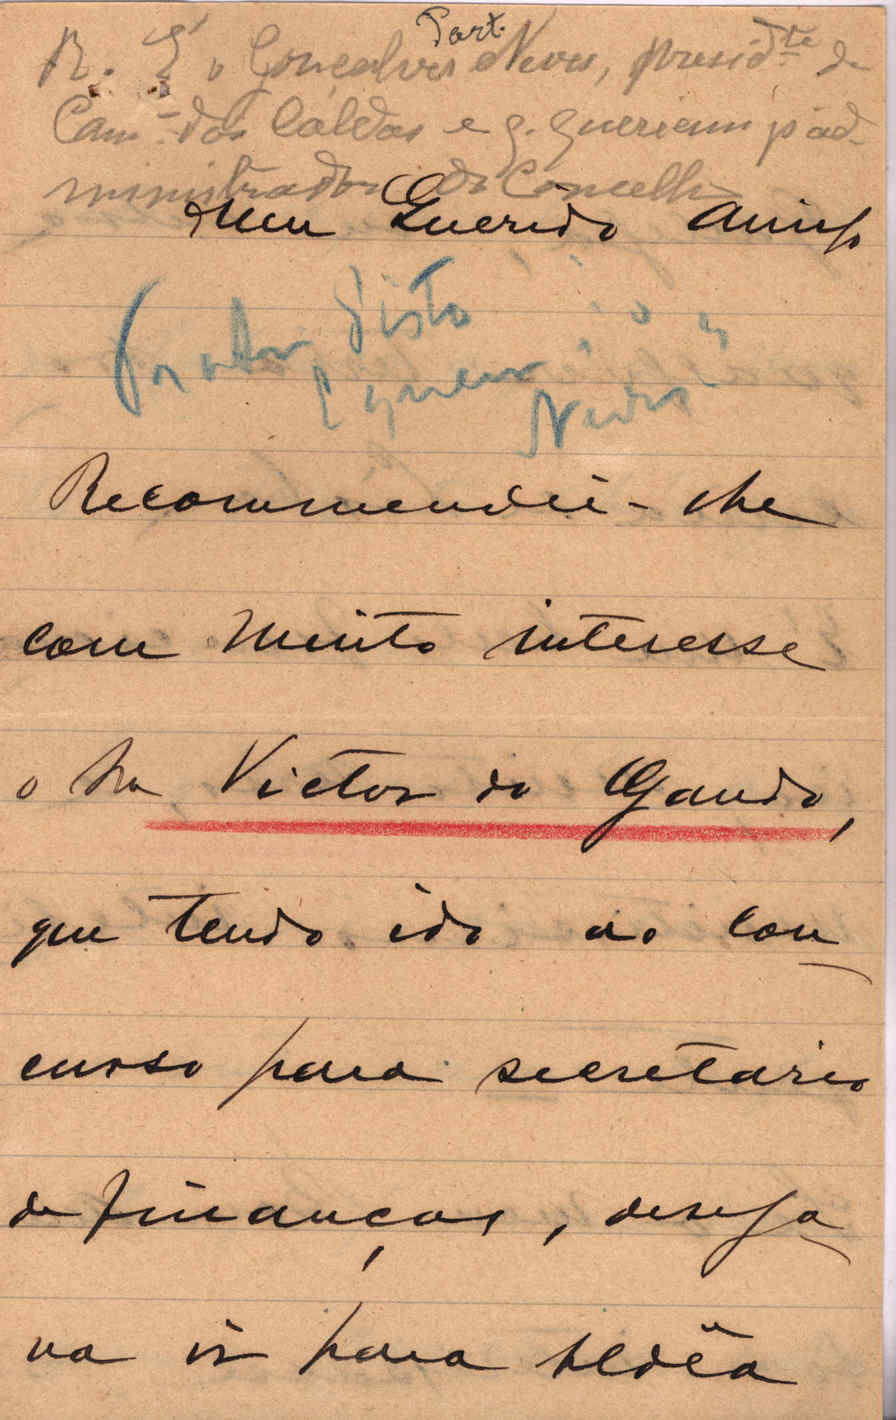 Part.
R. É o Gonçalves Neves, presid.te da
Cam.ª das Caldas e q. queriam p.ª ad-
ministrador do Concelho
Meu Querido Amigo
Recommendei-lhe
com muito interesse
o Snr Victor do Gando,
que tendo ido ao con
curso para secretario
de finanças, deseja
va ir para